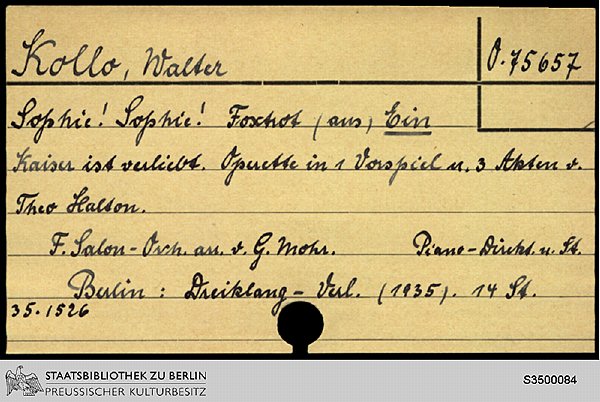 Kollo, Walter
O.75657
Sophie! Sophie! Foxtrot (aus) Ein
Kaiser ist verliebt. Operette in 1 Vorspiel u. 3 Akten v.
Theo Halton.
F. Salon-Orch. arr. v. G. Mohr. Piano-Direkt. u. St.
Berlin: Dreiklang-Verl. (1935). 14 St.
35.1526
STAATSBIBLIOTHEK ZU BERLIN
PREUSSISCHER KULTURBESITZ
S3500084